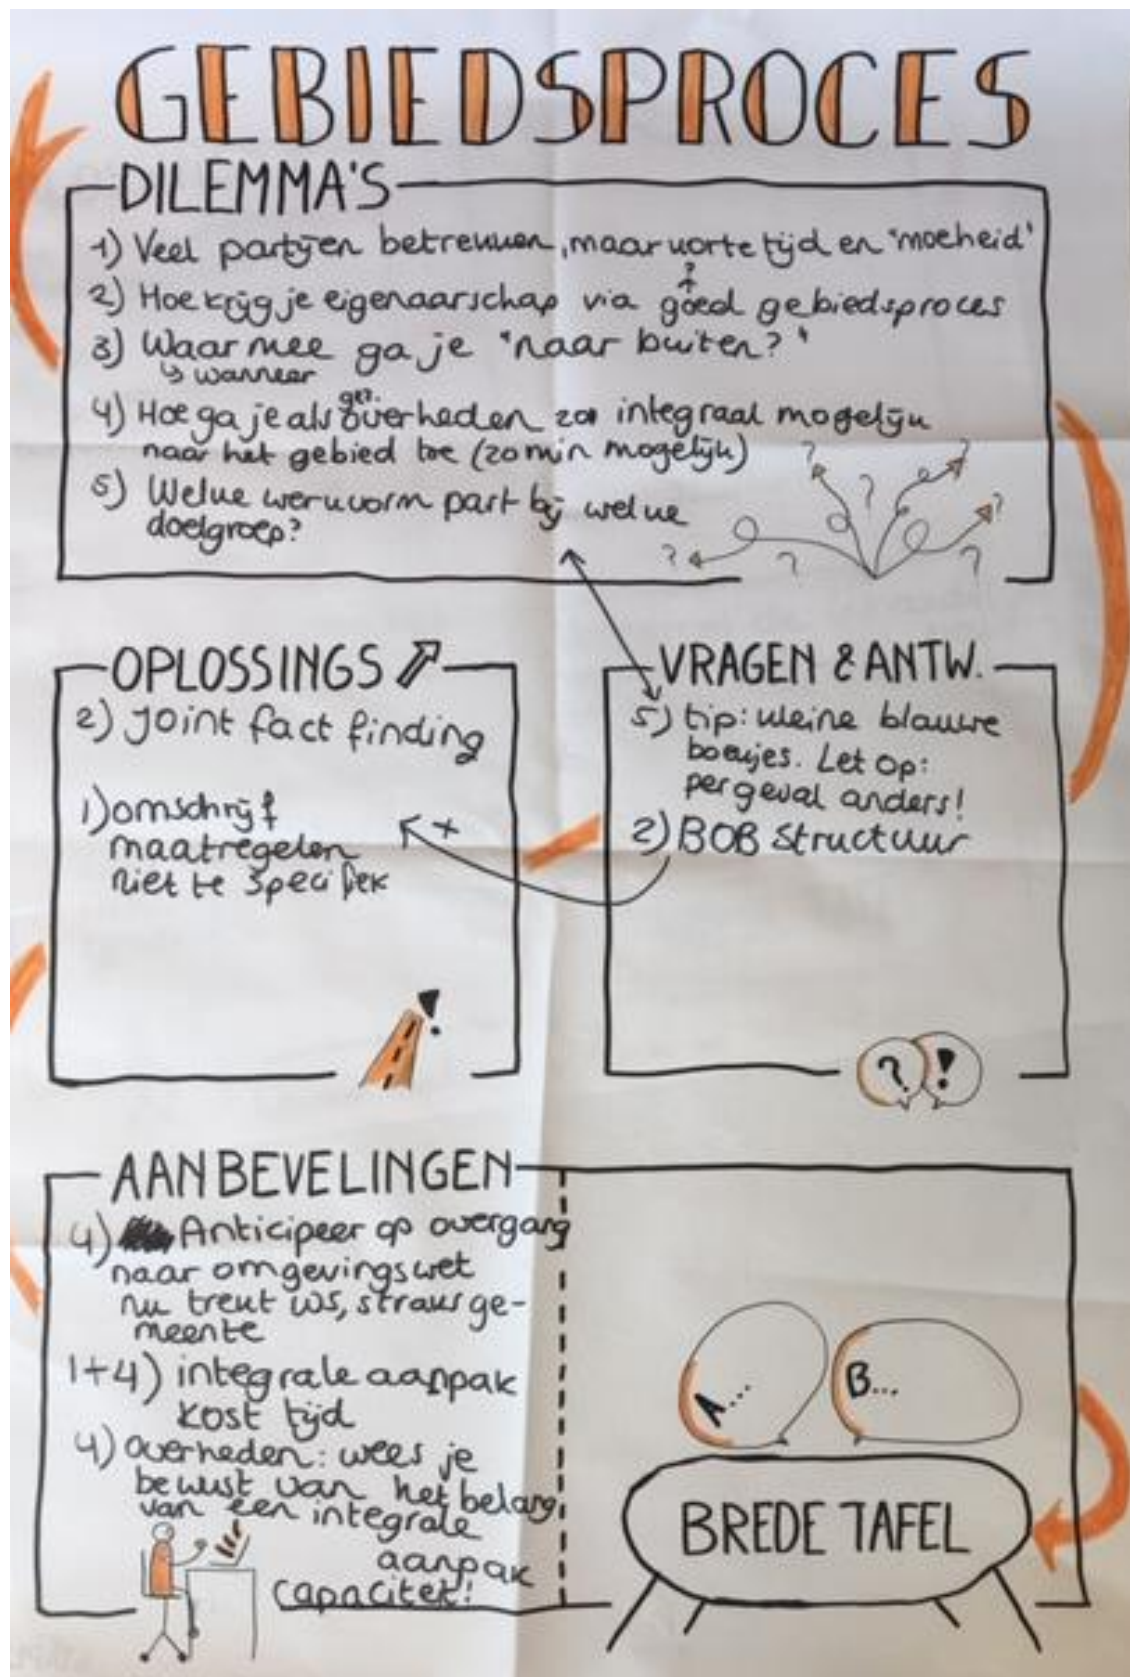 GEBIEDSPROCES
DILEMMA'S
1) Veel partijen betrekken, maar korte tijd en "moeheid"
?
2) Hoe krijg je eigenaarschap via goed gebiedsproces
3) Waar mee ga je "naar buiten?"
↳ wanneer
gez.
4) Hoe ga je als overheden zo integraal mogelijk
naar het gebied toe (zo min mogelijk)
5) Welke werkvorm past bij welke
doelgroep?
? ? ? ? ? ? ?
OPLOSSINGS
2) Joint fact finding
1) omschrijf
maatregelen
niet te specifiek
+
!
VRAGEN & ANTW.
5) tip: kleine blauwe
boekjes. Let op:
per geval anders!
2) BOB structuur
? !
AANBEVELINGEN
4) Anticipeer op overgang
naar omgevingswet
nu trekt ws, straks ge-
meente
1+4) integrale aanpak
kost tijd
4) overheden: wees je
bewust van het belang
van een integrale
aanpak
capaciteit!
A...
B...
BREDE TAFEL